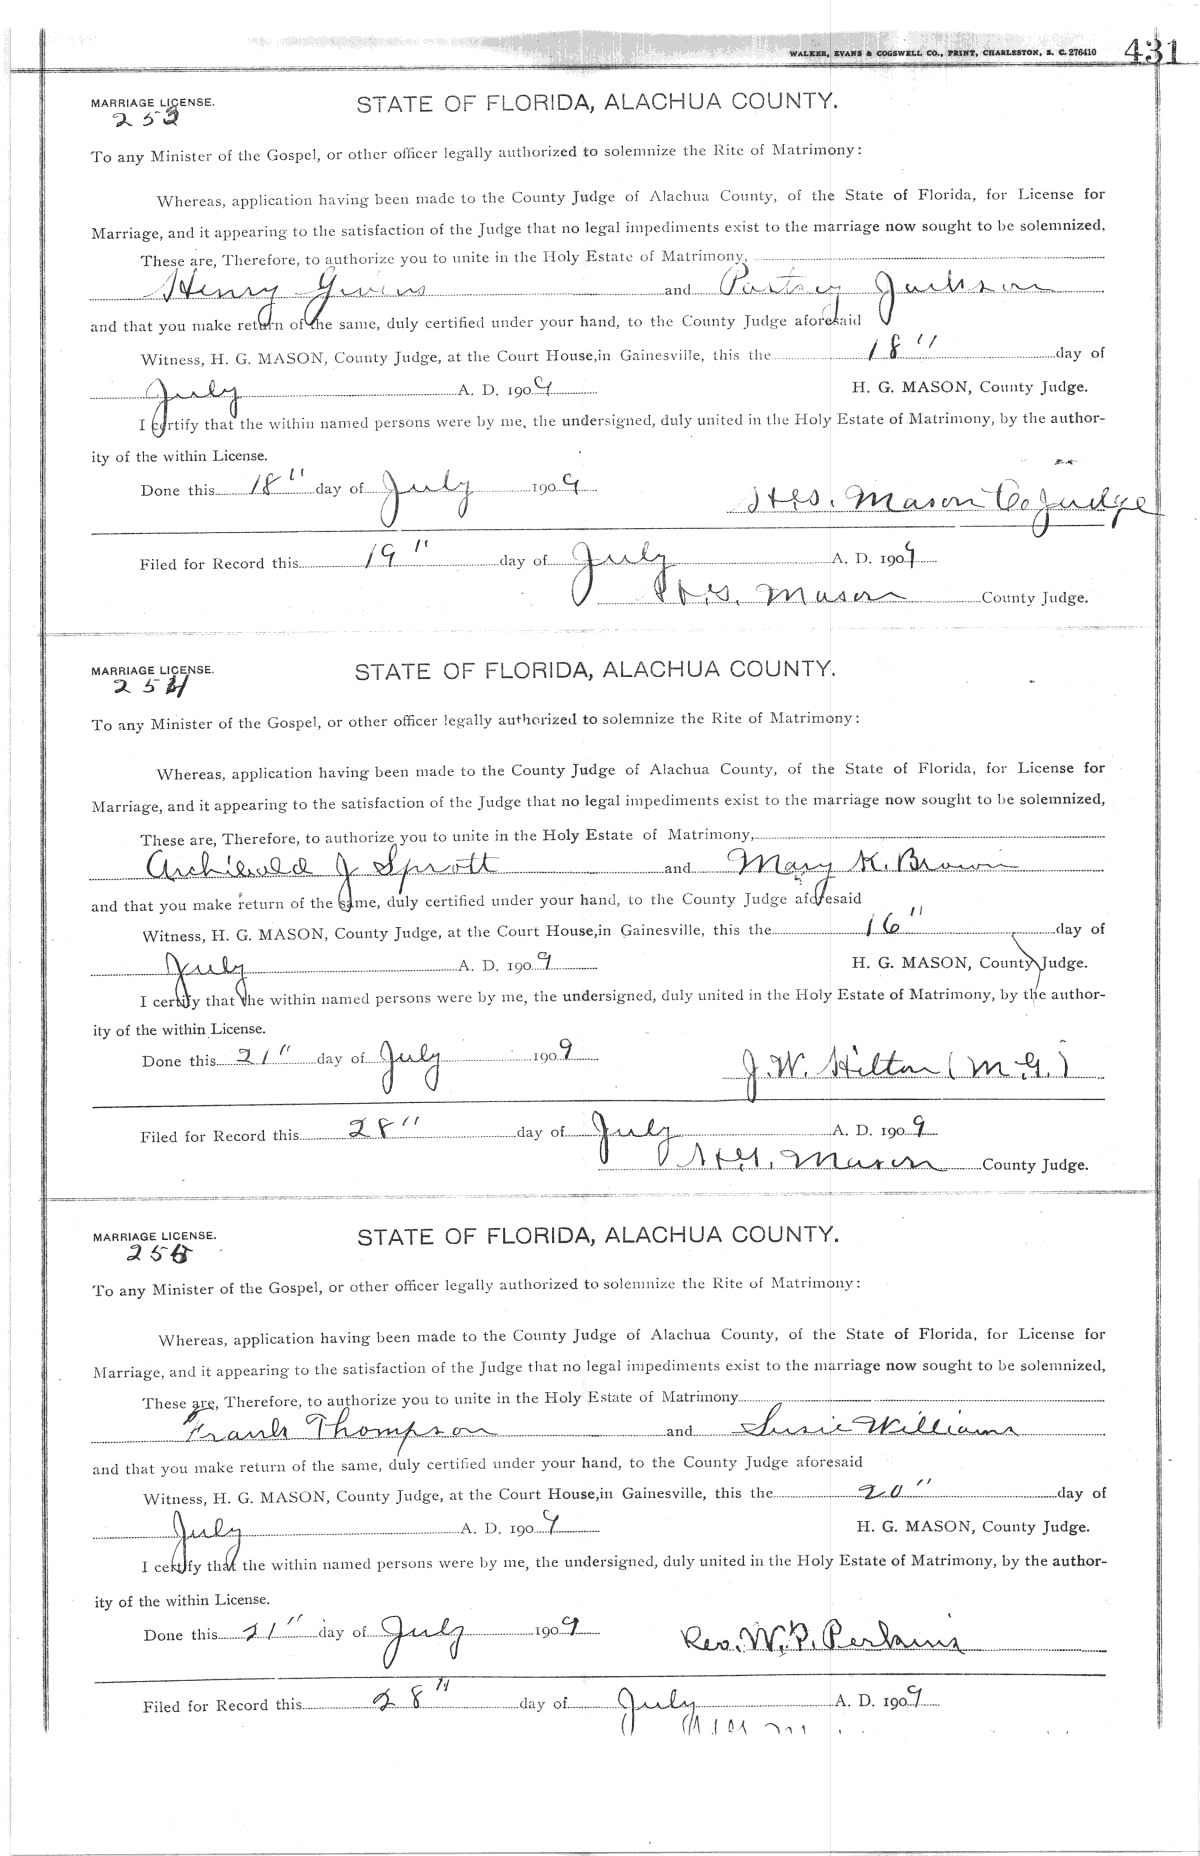 WALKER, EVANS & COGSWELL CO., PRINT, CHARLESTON, S. C. 276410 431
MARRIAGE LICENSE. STATE OF FLORIDA, ALACHUA COUNTY.
253
To any Minister of the Gospel, or other officer legally authorized to solemnize the Rite of Matrimony:
Whereas, application having been made to the County Judge of Alachua County, of the State of Florida, for License for
Marriage, and it appearing to the satisfaction of the Judge that no legal impediments exist to the marriage now sought to be solemnized.
These are, Therefore, to authorize you to unite in the Holy Estate of Matrimony,
Henry Givens and Jackson
and that you make return of the same, duly certified under your hand, to the County Judge aforesaid
Witness, H. G. MASON, County Judge, at the Court House, in Gainesville, this the 18" day of
July A. D. 1909 H. G. MASON, County Judge.
I certify that the within named persons were by me, the undersigned, duly united in the Holy Estate of Matrimony, by the author-
ity of the within License.
Done this 18" day of July 1909
H.G. Mason Co. Judge
Filed for Record this 19" day of July A. D. 1909
H.G. Mason County Judge.
MARRIAGE LICENSE. STATE OF FLORIDA, ALACHUA COUNTY.
254
To any Minister of the Gospel, or other officer legally authorized to solemnize the Rite of Matrimony:
Whereas, application having been made to the County Judge of Alachua County, of the State of Florida, for License for
Marriage, and it appearing to the satisfaction of the Judge that no legal impediments exist to the marriage now sought to be solemnized,
These are, Therefore, to authorize you to unite in the Holy Estate of Matrimony,
Archibald J Sprott and Mary K. Brown
and that you make return of the same, duly certified under your hand, to the County Judge aforesaid
Witness, H. G. MASON, County Judge, at the Court House, in Gainesville, this the 16" day of
July A. D. 1909 H. G. MASON, County Judge.
I certify that the within named persons were by me, the undersigned, duly united in the Holy Estate of Matrimony, by the author-
ity of the within License.
Done this 21" day of July 1909
J. W. Hilton (M.G.)
Filed for Record this 28" day of July A. D. 1909
H.G. Mason County Judge.
MARRIAGE LICENSE. STATE OF FLORIDA, ALACHUA COUNTY.
255
To any Minister of the Gospel, or other officer legally authorized to solemnize the Rite of Matrimony:
Whereas, application having been made to the County Judge of Alachua County, of the State of Florida, for License for
Marriage, and it appearing to the satisfaction of the Judge that no legal impediments exist to the marriage now sought to be solemnized,
These are, Therefore, to authorize you to unite in the Holy Estate of Matrimony
Frank Thompson and Susie Williams
and that you make return of the same, duly certified under your hand, to the County Judge aforesaid
Witness, H. G. MASON, County Judge, at the Court House, in Gainesville, this the 20" day of
July A. D. 1909 H. G. MASON, County Judge.
I certify that the within named persons were by me, the undersigned, duly united in the Holy Estate of Matrimony, by the author-
ity of the within License.
Done this 21" day of July 1909
Rev. W. P. Perkins
Filed for Record this 28" day of July A. D. 1909